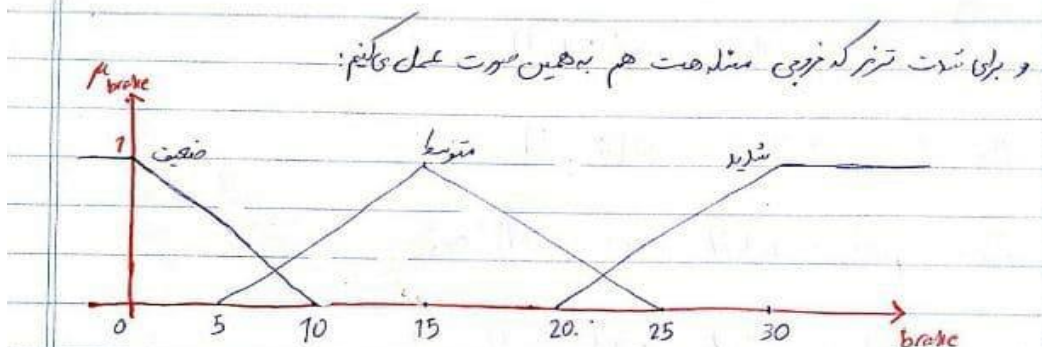 و برای شدت ترمز که خروجی مسئله هست هم به همین صورت عمل می‌کنیم:
μ brake
1
ضعیف
متوسط
شدید
0 5 10 15 20. 25 30
brake